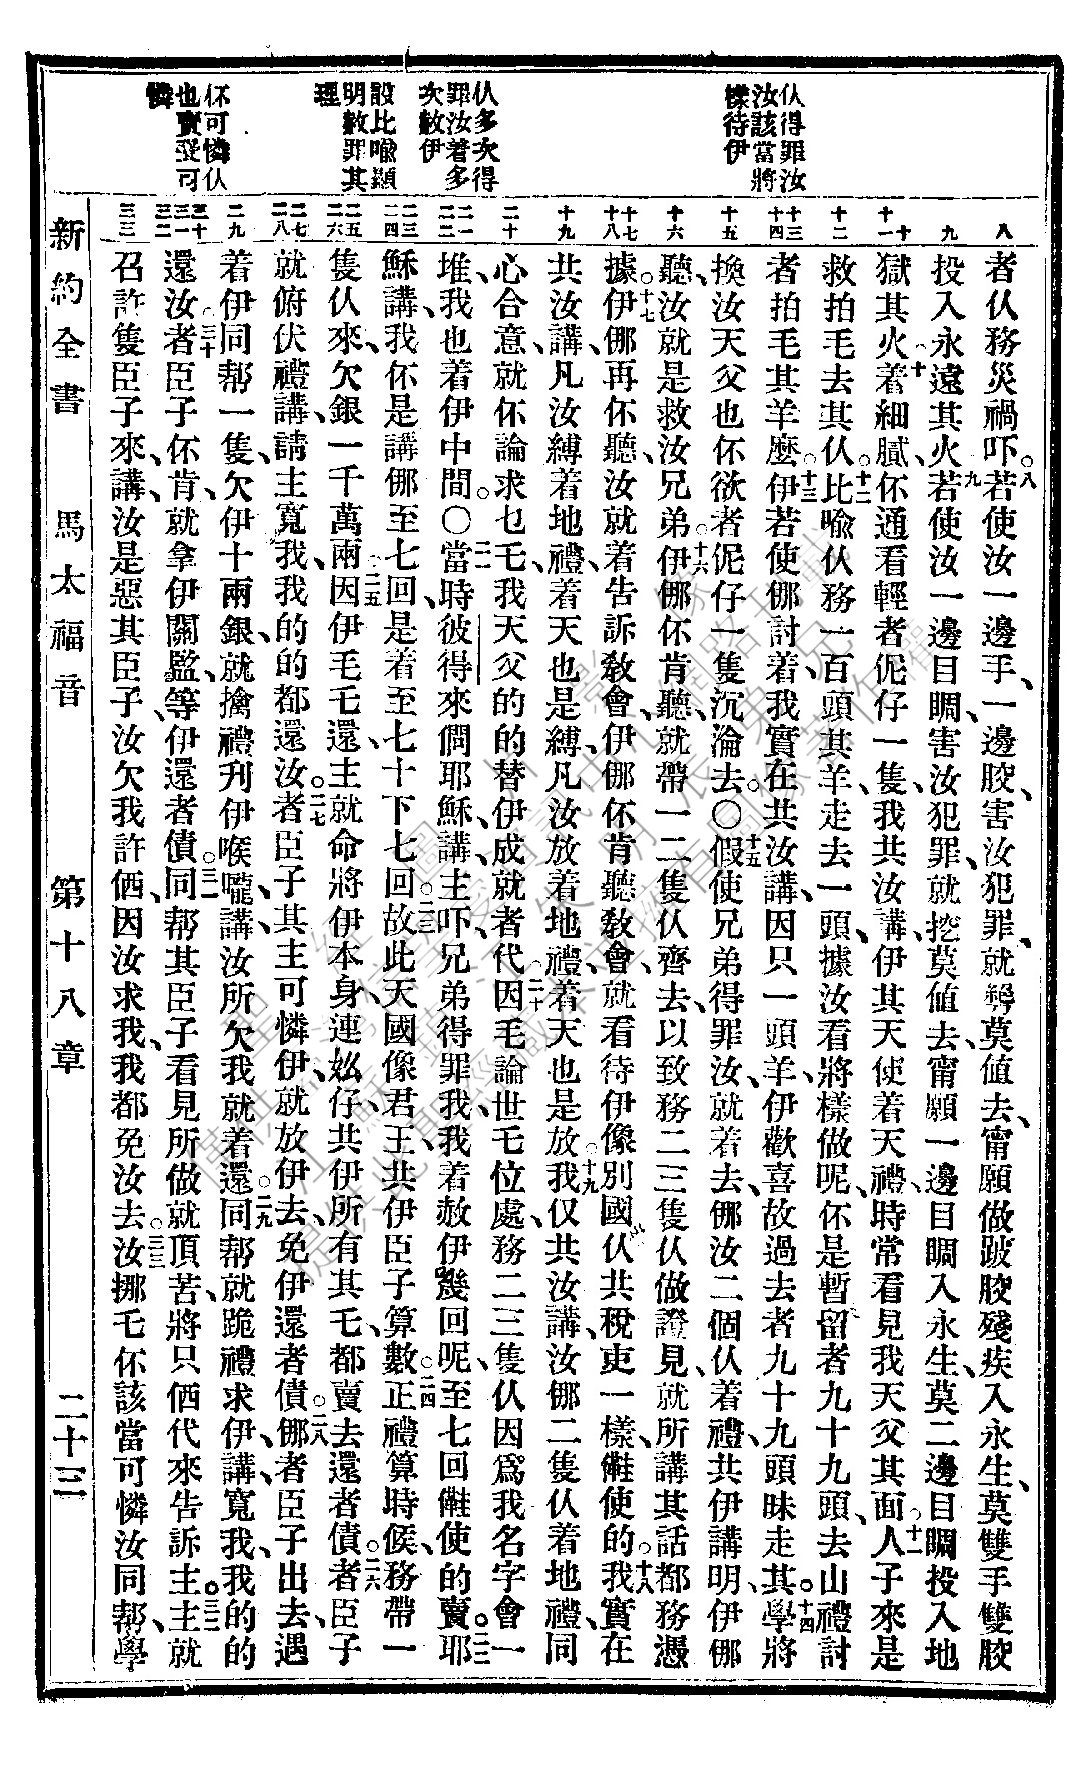 仈得罪汝
汝該當將
樣待伊
仈多次得
罪汝着多
次赦伊
設比喻顯
明赦罪其
理
伓可憐仈
也賣受可
憐
八
九
十
十一
十二
十三
十四
十五
十六
十七
十八
十九
二十
二一
二二
二三
二四
二五
二六
二七
二八
二九
三十
三一
三二
三三
者仈務災禍吓。八若使汝一邊手、一邊骹、害汝犯罪、就莫値去、甯願做跛骹殘疾入永生、莫雙手雙骹
投入永遠其火九若使汝一邊目睭、害汝犯罪、就挖莫値去、甯願一邊目睭入永生、莫二邊目睭投入地
獄其火。十着細膩、伓通看輕者伲仔一隻、我共汝講、伊其天使着天禮、時常看見我天父其面。十一人子來是
救拍乇去其仈。十二比喻仈務一百頭其羊、走去一頭、據汝看將樣做呢、伓是暫留者九十九頭、去山禮討
者拍乇其羊麼。十三伊若使㑚討着、我實在共汝講、因只一頭羊、伊歡喜故過去者九十九頭昧走其。十四學將
換汝天父也伓欲者伲仔一隻沉淪去。〇十五假使兄弟得罪汝、就着去、㑚汝二個仈着禮、共伊講明、伊㑚
聽汝就是救汝兄弟。十六伊㑚伓肯聽、就帶一二隻仈齊去、以致務二三隻仈做證見、就所講其話都務憑
據。十七伊㑚再伓聽、汝就着告訴敎會、伊㑚伓肯聽敎會、就看待伊像別國仈共稅吏一樣、使的。十八我實在
共汝講、凡汝縛着地禮、着天也是縛、凡汝放着地禮、着天也是放。十九我仅共汝講、汝㑚二隻仈着地禮同
心合意、就伓論求乜乇、我天父的的替伊成就者代。二十因乇論世乇位處、務二三隻仈因爲我名字會一
堆、我也着伊中間。〇二一當時彼得來問耶穌講、主吓、兄弟得罪我、我着赦伊幾回呢、至七回使的賣。二二耶
穌講、我伓是講㑚至七回、是着至七十下七回。二三故此天國像君王共伊臣子算數。二四正禮算時候、務帶一
隻仈來、欠銀一千萬兩。二五因伊乇乇還、主就命將伊本身、連㚢仔、共伊所有其乇、都賣去還者債。二六者臣子
就俯伏禮講、請主寬我、我的的都還汝。二七者臣子其主可憐伊、就放伊去、免伊還者債。二八㑚者臣子出去、遇
着伊同帮一隻、欠伊十兩銀、就擒禮刋伊喉嚨、講、汝所欠我就着還。二九同帮就跪禮求伊講、寬我、我的的
還汝。三十者臣子伓肯、就拿伊關監、等伊還者債。三一同帮其臣子看見所做就頂苦、將只代來告訴主。三二主就
召許隻臣子來講、汝是惡其臣子、汝欠我許、因汝求我、我都免汝去。三三汝挪乇伓該當可憐汝同帮、學
新約全書 馬太福音 第十八章 二十三